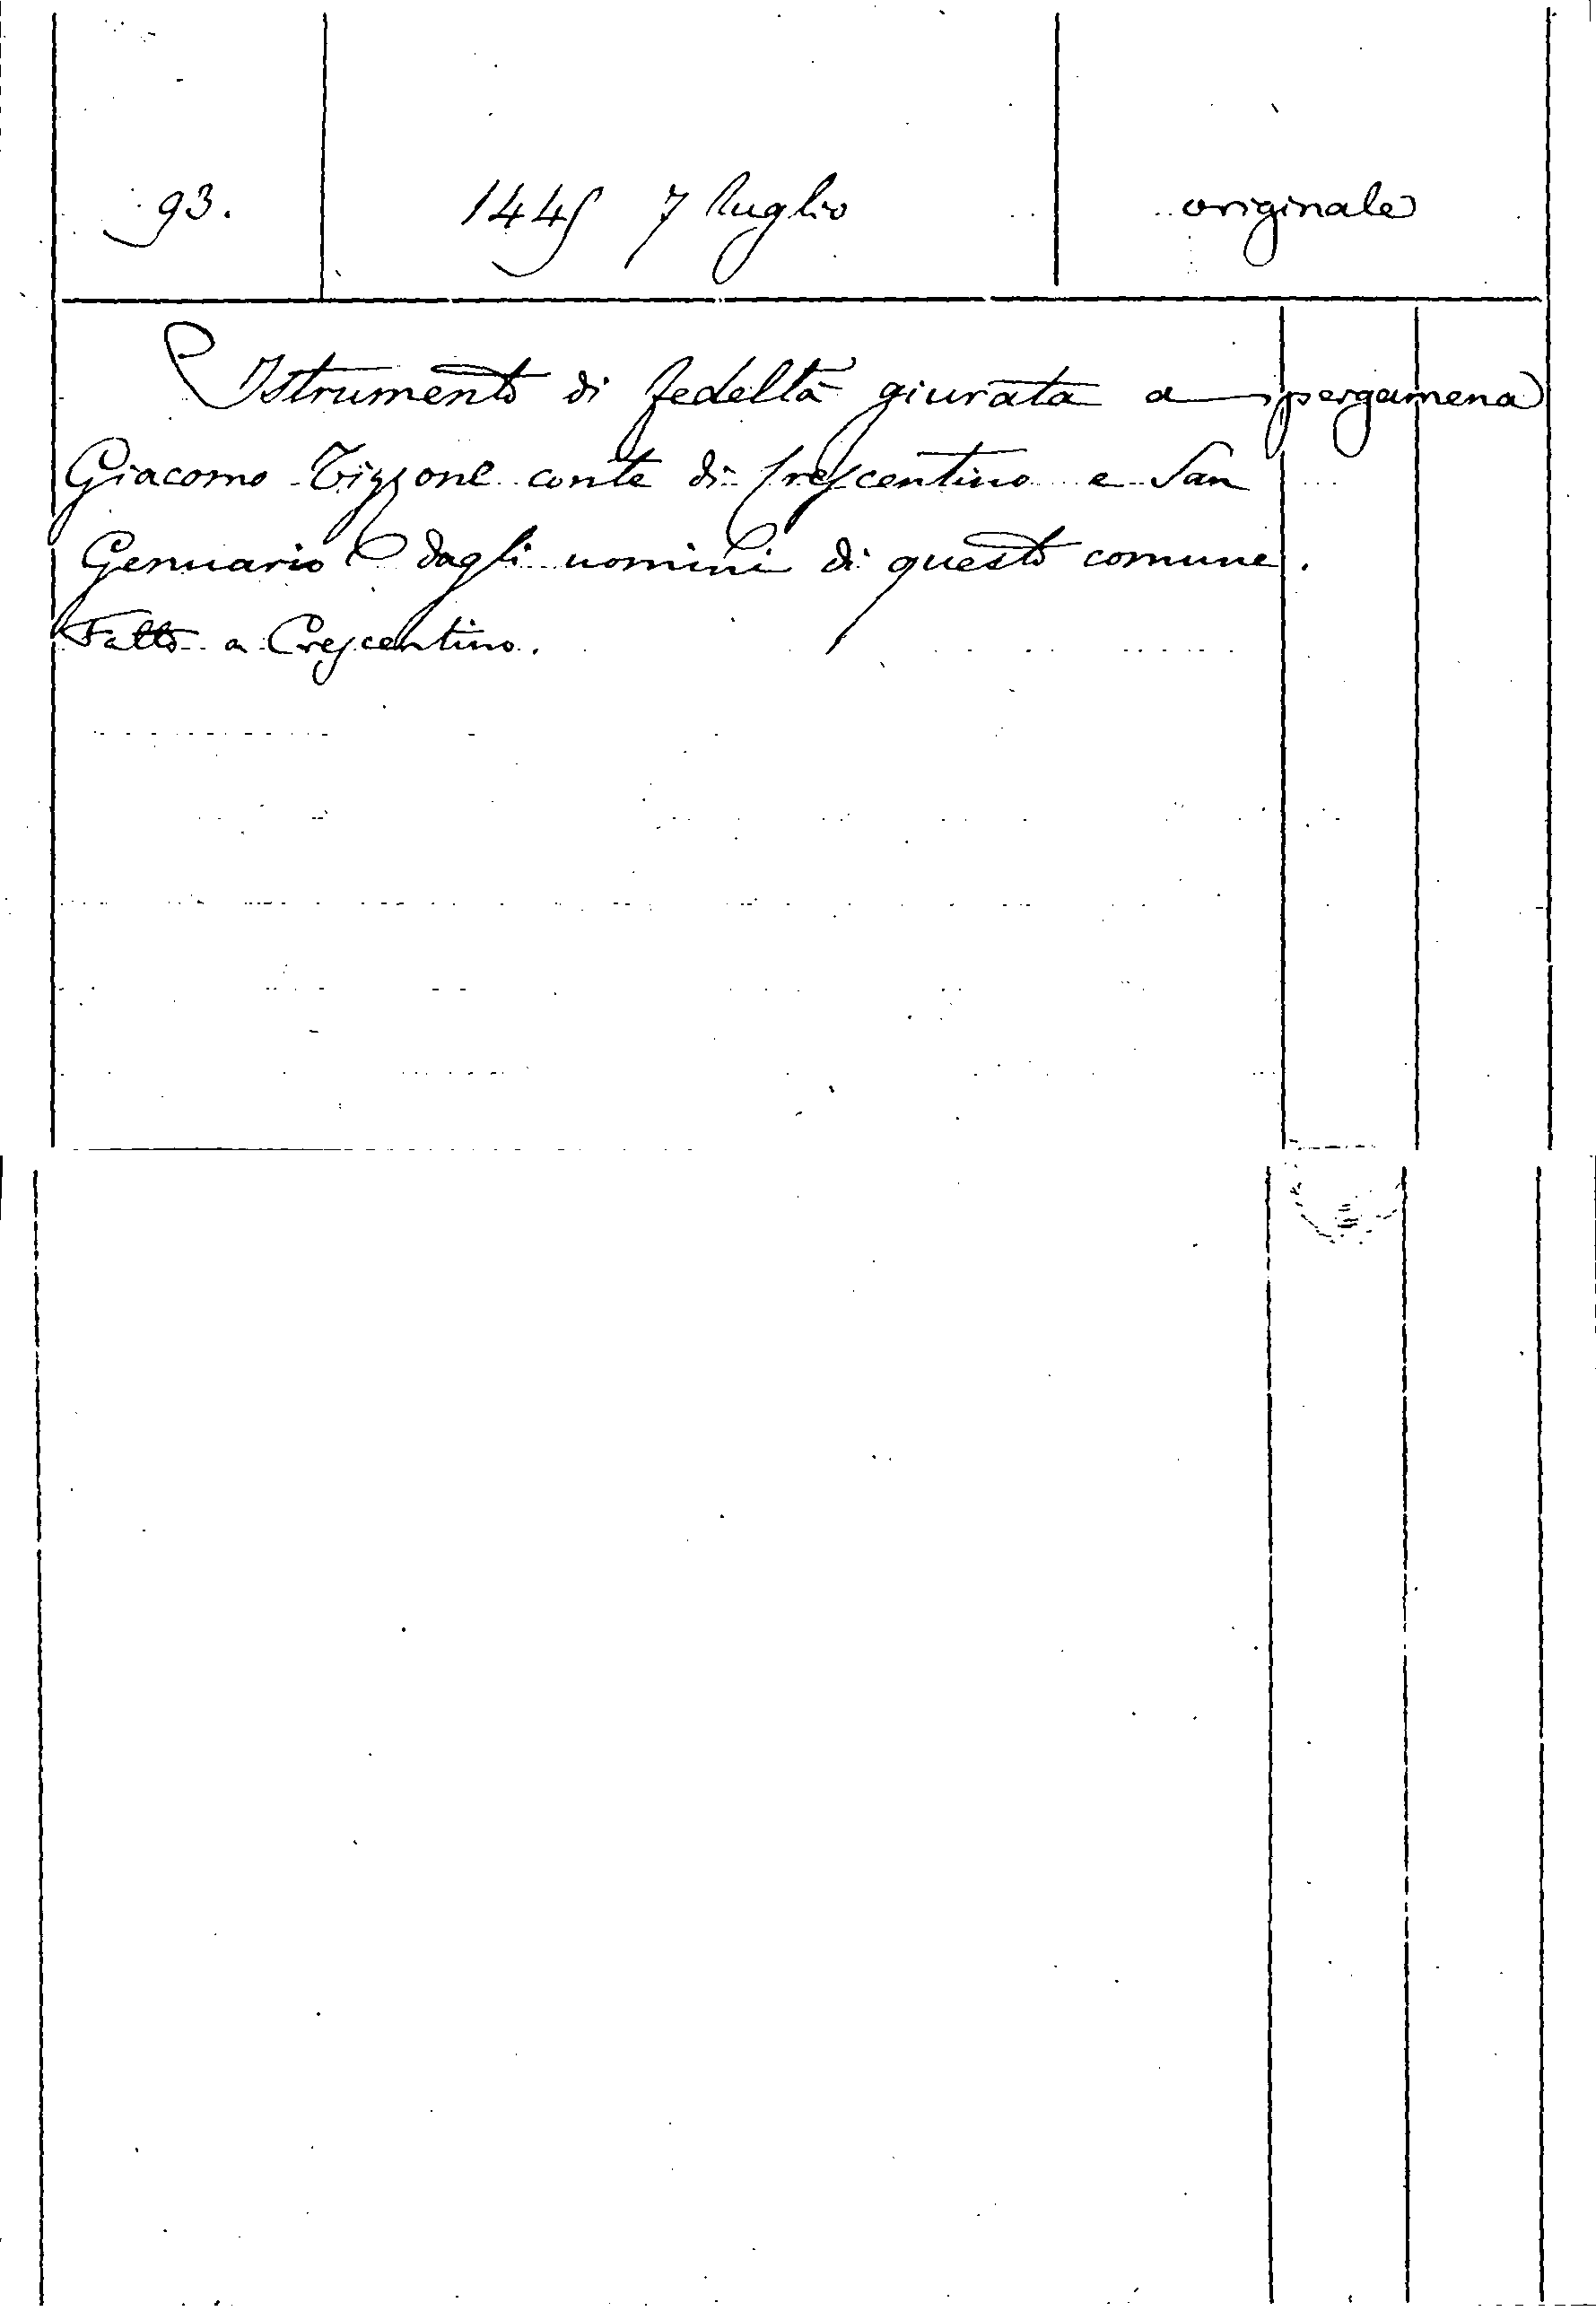 93. 1445 7 luglio originale
Istrumento di fedeltà giurata a pergamena
Giacomo Tizzone conte di Crescentino e San
Genuario dagli uomini di questo comune.
Fatto a Crescentino.